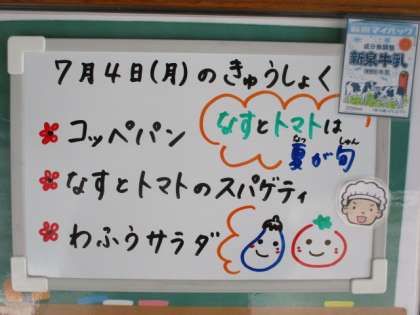 7月4日(月)のきゅうしょく
コッペパン
なすとトマトは
夏が旬
なつ
しゅん
なすとトマトのスパゲティ
わふうサラダ
成分無調整
牛乳